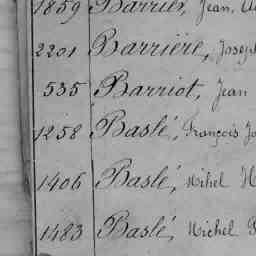 1859 Barrier, Jean,
2201 Barrière, Joseph
535 Barriot, Jean
1258 Baslé, François
1406 Baslé, Mihel
1483 Baslé, Michel